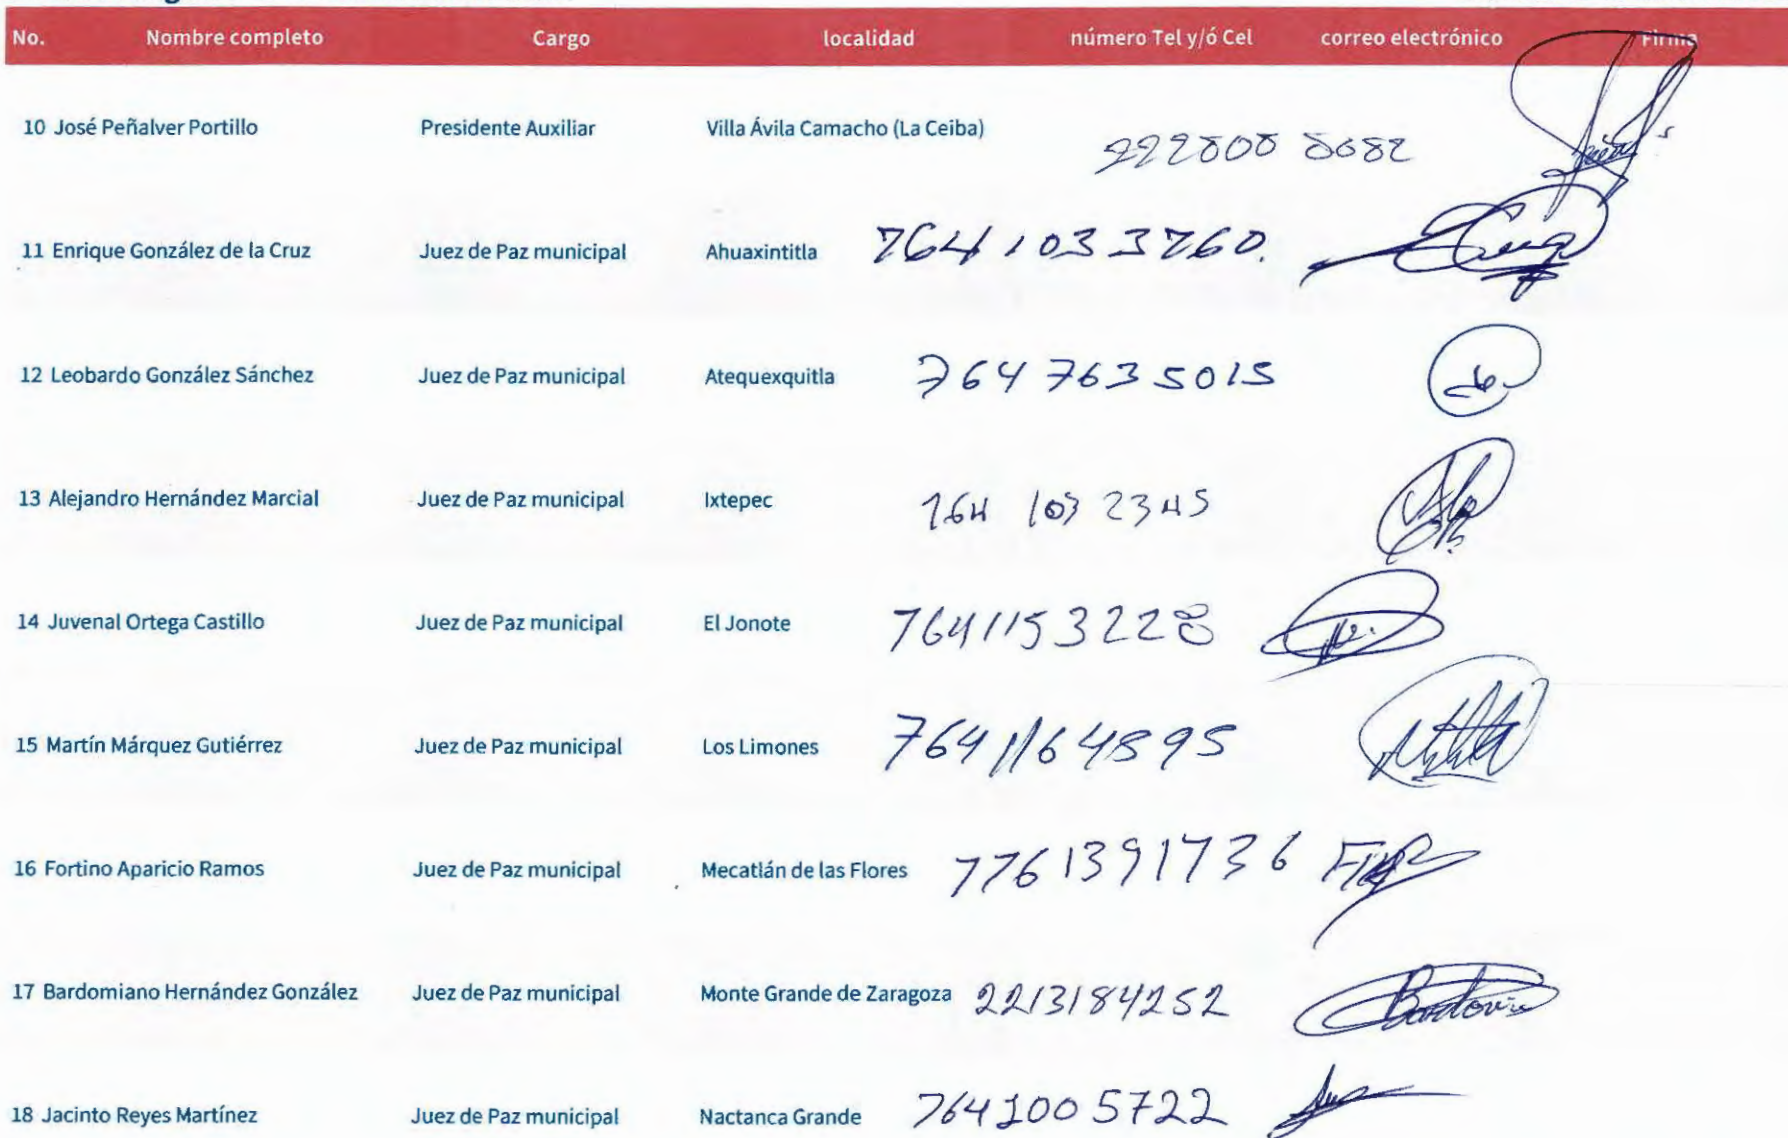 No. Nombre completo Cargo localidad número Tel y/ó Cel correo electrónico Firma
10 José Peñalver Portillo Presidente Auxiliar Villa Ávila Camacho (La Ceiba) 222808 8682
11 Enrique González de la Cruz Juez de Paz municipal Ahuaxintitla 764 1033760.
12 Leobardo González Sánchez Juez de Paz municipal Atequexquitla 764 763 5015
13 Alejandro Hernández Marcial Juez de Paz municipal Ixtepec 764 103 2345
14 Juvenal Ortega Castillo Juez de Paz municipal El Jonote 7641153228
15 Martín Márquez Gutiérrez Juez de Paz municipal Los Limones 7641164895
16 Fortino Aparicio Ramos Juez de Paz municipal Mecatlán de las Flores 7761391736
17 Bardomiano Hernández González Juez de Paz municipal Monte Grande de Zaragoza 2213184252
18 Jacinto Reyes Martínez Juez de Paz municipal Nactanca Grande 764100 5722